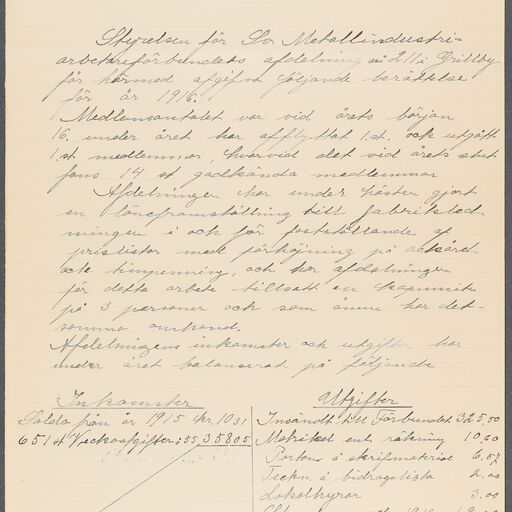 Styrelsen för Sv. Metallindustri-
arbetareförbundets afdelning nº 211 i Grillby
får härmed afgifva följande berättelse
för år 1916.
Medlemsantalet var vid årets början
16. under året har afflyttat 1.st. och utgått
1.st medlemmar, hvarvid det vid årets slut
fans 14 st godkända medlemmar
Afdelningen har under hösten gjort
en löneframställning till fabriksled-
ningen i och för fastställande af
prislistor med förhöjning på ackord
och timpenning, och har afdelningen
för detta arbete tillsatt en
på 3 personer och som ännu har det-
samma omhand.
Afdelningens inkomster och utgifter har
under året balanserat på följande
Inkomster
Saldo från år 1915 Kr. 10 31
651 st Veckoafgifter : 55, 358 05
Utgifter
Insändt till Förbundet 325,50
Matrikel enl. räkning 10,60
Porton å skrifmaterial 6,57
Teckn. å bidragslista 2,00
Lokalhyror 3,00